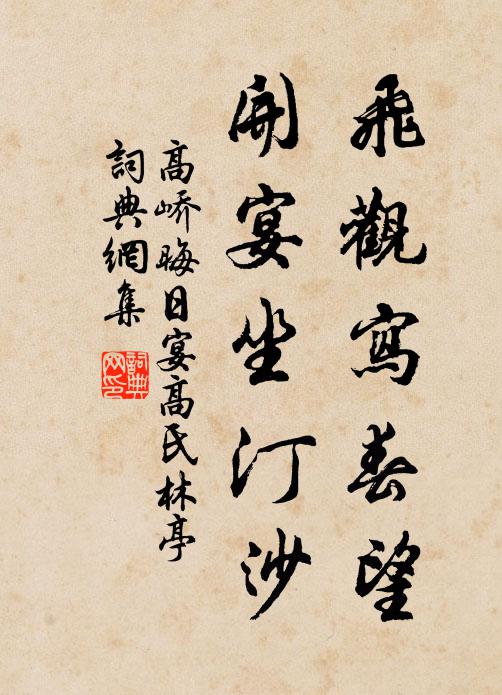 飛觀寫春望
開宴坐汀沙
高嶠晦日宴高氏林亭
詞典網集
詞典網印